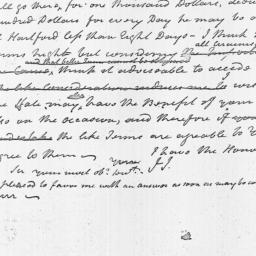 ll go there, for one Thousand Dollars, dedu
undred Dollars for every Day he may be a
t Hartford less than Eight Days - I think
all Circums
erms high, but considering
and that better Terms cannot be obtained
think it adviseable to accede
the like consideration induces me to wis
he State may have the Benefit of your
s on the occasion, and therefore if you
undertake the like Terms are agreeable to
gree to them
I have the Honor
Sir Your most ob. Servt.
J.J.
pleased to favor me with an answer as soon as may be co